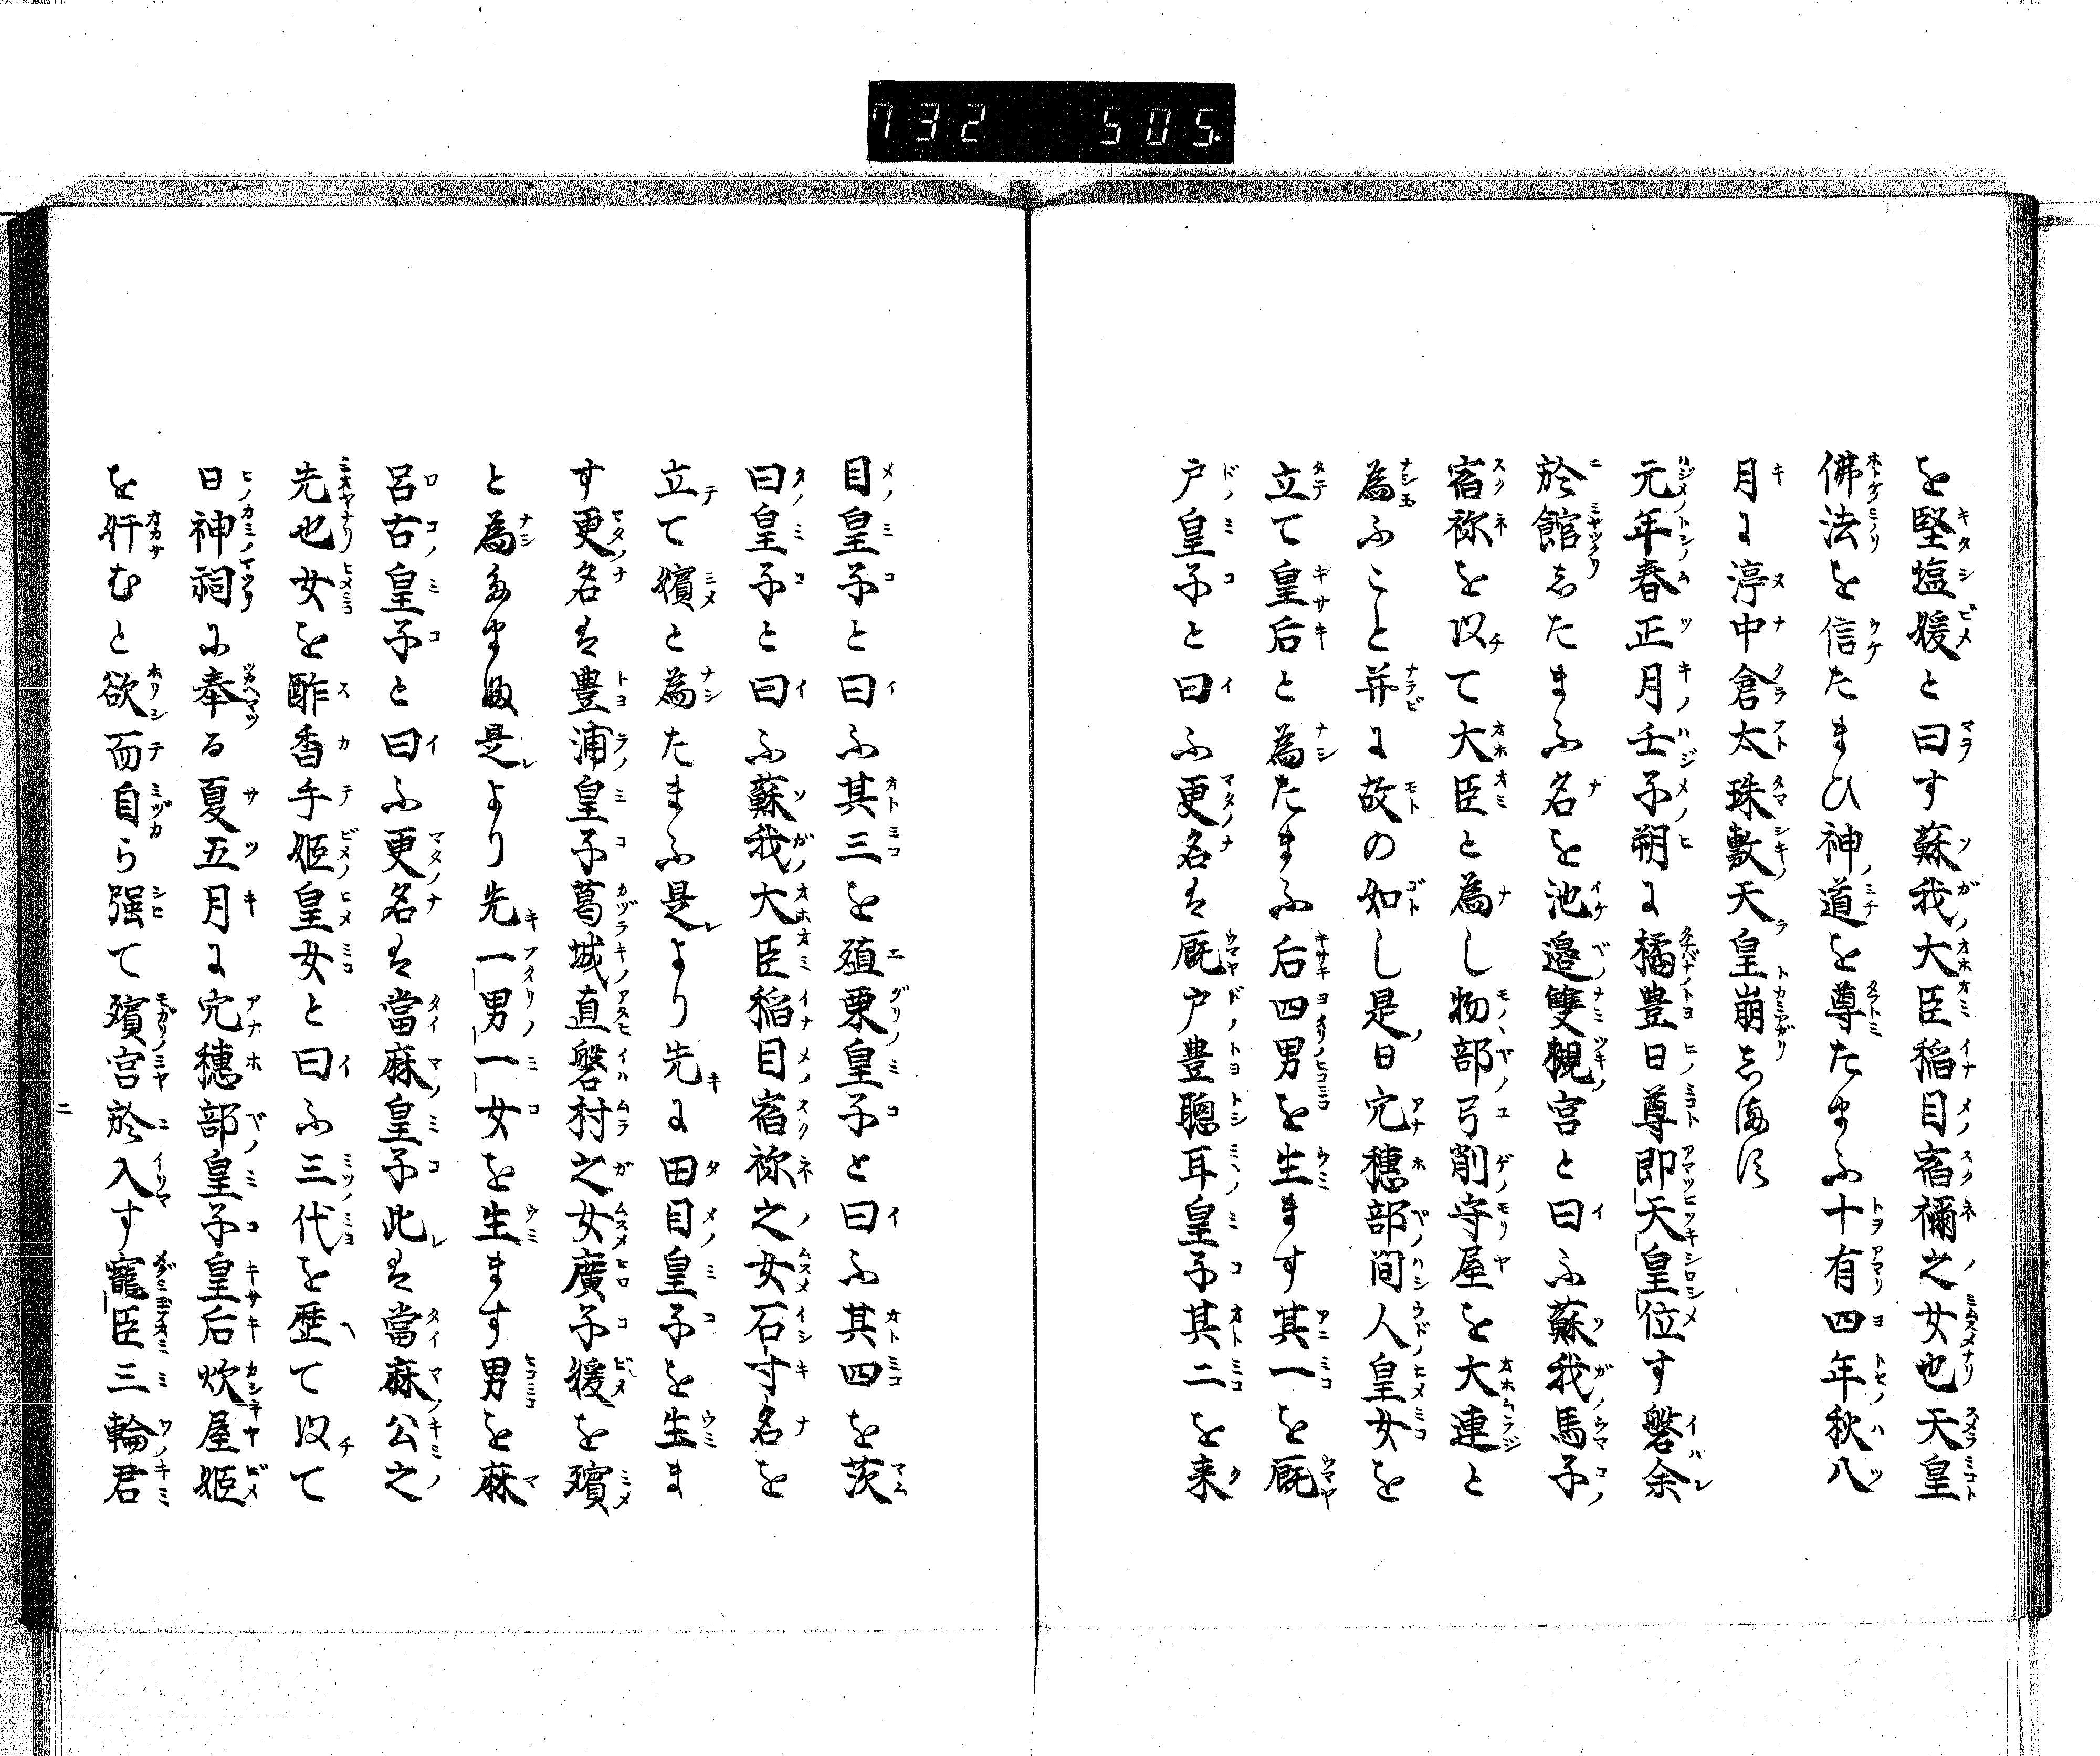 732 505.
を堅塩媛と曰す蘇我大臣稲目宿禰之女也天皇
佛法を信たまひ神道を尊たまふ十有四年秋八
月に渟中倉太珠敷天皇崩しましぬ
元年春正月壬子朔に橘豊日尊即天皇位す磐余
於館したまふ名を池邉雙槻宮と曰ふ蘇我馬子
宿祢を以て大臣と為し物部弓削守屋を大連と
為ふこと并に故の如し是日穴穂部間人皇女を
立て皇后と為たまふ后四男を生ます其一を厩
戸皇子と曰ふ更名は厩戸豊聰耳皇子其二を来
目皇子と曰ふ其三を殖栗皇子と曰ふ其四を茨
田皇子と曰ふ蘇我大臣稲目宿祢之女石寸名を
立て嬪と為たまふ是より先に田目皇子を生ま
す更名は豊浦皇子葛城直磐村之女廣子媛を嬪
と為たまふ是より先一男一女を生ます男を麻
呂古皇子と曰ふ更名は當麻皇子此は當麻公之
先也女を酢香手姫皇女と曰ふ三代を歴て以て
日神祠に奉る夏五月に穴穂部皇子皇后炊屋姫
を奸むと欲而自ら强て殯宮於入す寵臣三輪君
二